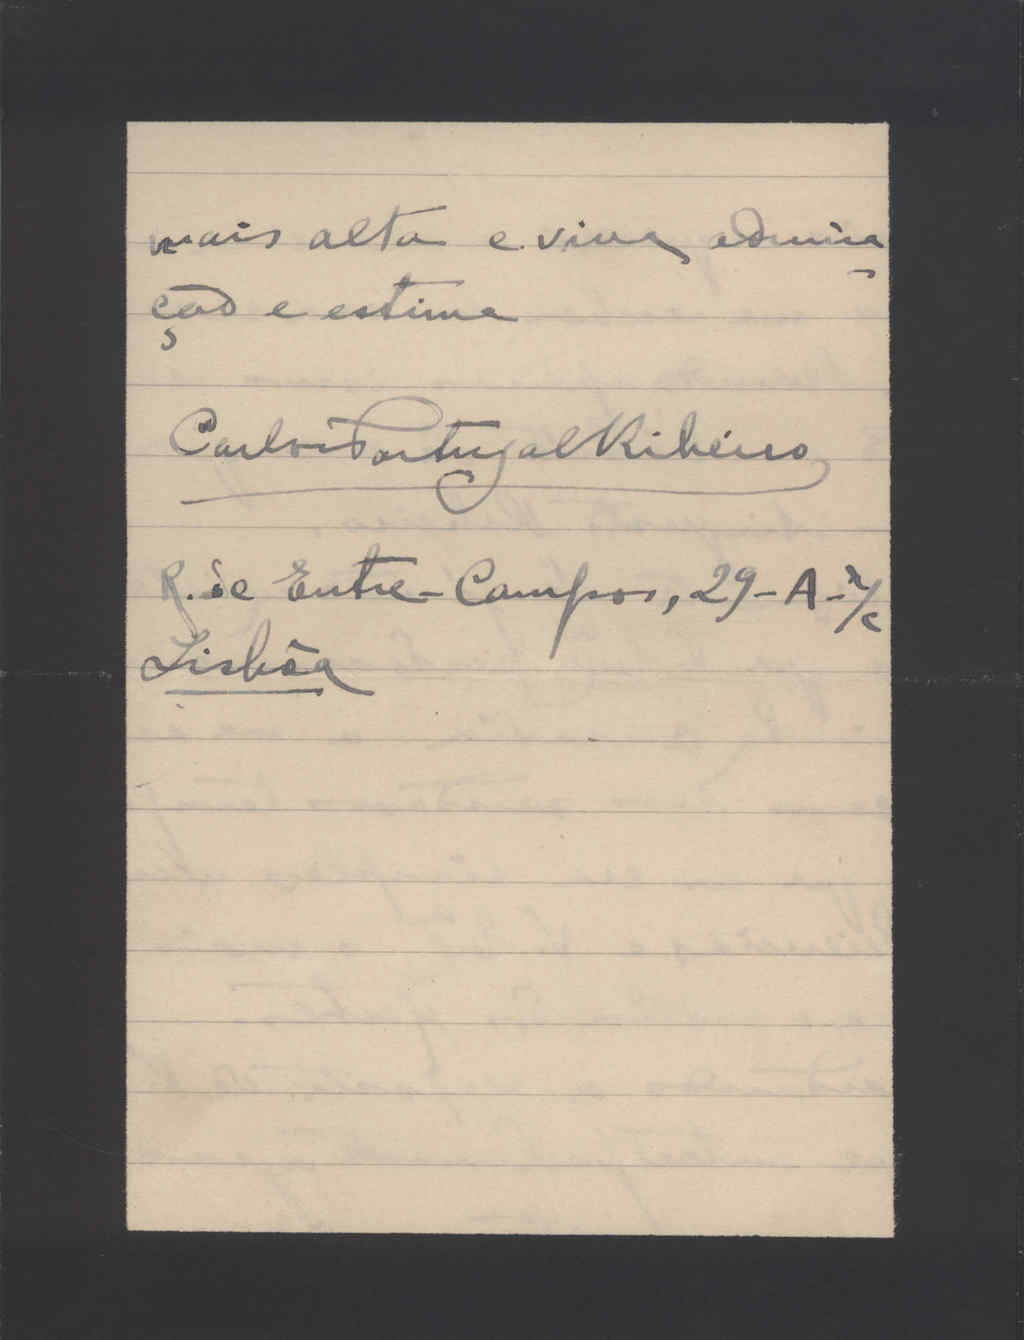 mais alta e viva admira-
ção e estima
Carlos Portugal Ribeiro
R. de Entre-Campos, 29-A-r/c
Lisbôa